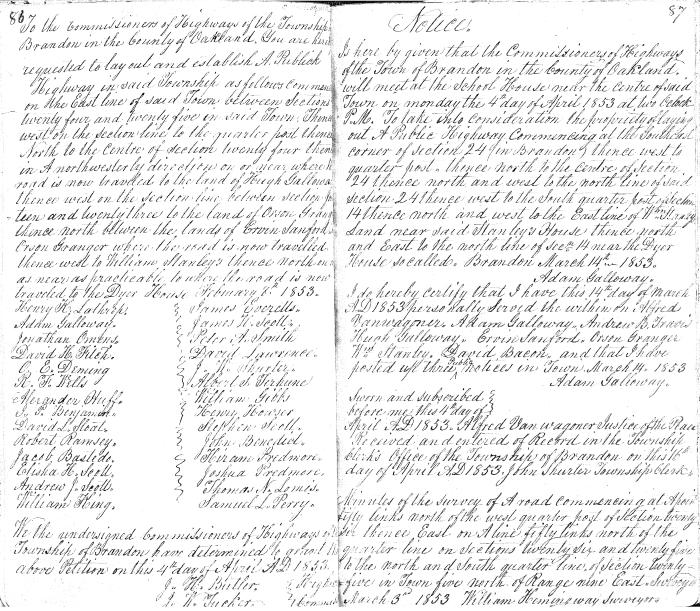 86
To the Commissioners of Highways of the Township
Brandon in the County of Oakland. You are here
requested to layout and establish A Publick
Highway in said Township as follows commen
on the East line of said Town between Sections
twenty four and twenty five in said Town. Thence
west on the section line to the quarter post thence
North to the Centre of section twenty four thence
in A northwesterly direction on or near where
road is now traveled to the land of Hugh Gallowa
thence west on the section line between section
teen and twenty three to the land of Orson Gran
thence north between the lands of Ervin Sanford
Orson Granger where the road is now travelled
thence west to William Stanleys thence north
as near as practicable to where the road is now
traveled to the Dyer House February 8th 1853.
Henry K. Lathrop. James Everells.
Adam Galloway. James N. Scott.
Jonathan Owens. Peter A. Smith
David H. Fitch. David Lawrence.
C. E. Deming W. Shurter.
K. F. Wells Albert S. Terhune
Alexander Huff. William Gibbs
Benjamin. Henry Houser
David L. Stephen Scott.
Robert Ramsey. John Benedict.
Jacob Baslede. Hiram Predmore.
Elisha H. Scott. Joshua Predmore.
Andrew J. Scott. Thomas N. Lomis.
William King. Samuel L. Perry.
We the undersigned Commissioners of Highways of
Township of Brandon have determined to grant the
above Petition on this 4th day of April AD 1853.
J. H. Butler.
J. W. Tucker. Commis
87
Notice.
Is here by given that the Commissioners of Highways
of the Town of Brandon in the County of Oakland.
will meet at the School House near the Centre of said
Town on monday the 4th day of April 1853 at two Oclock
P.M. To take into consideration the propriety of laying
out A Public Highway Commencing at the South east
corner of Section 24 (in Brandon) thence west to
quarter post. thence north to the Centre of Section
24 thence north and west to the north line of said
Section 24 thence west to the South quarter post of section
14 thence north and west to the East line of Wm Stanley
Land near said Stanleys House thence north
and East to the north line of Sect. 14 near the Dyer
House so called. Brandon March 14th 1853.
Adam Galloway.
I do hereby certify that I have this 14th day of March
AD 1853 personally Served the within on Alfred
Vanwagoner. Adam Galloway. Andrew B. Travis
Hugh Galloway. Ervin Sanford. Orson Granger
Wm Stanley. David Bacon. and that I have
posted up three Public Notices in Town March 14. 1853
Adam Galloway.
Sworn and subscribed
before me this 4th day of
April AD 1853. Alfred Vanwagoner Justice of the Peace
Received and entered of Record in the Township
Clerk's Office of the Township of Brandon on this
day of April AD 1853 John Shurter Township Clerk
Minutes of the Survey of A road commencing at A post
fifty links north of the west quarter post of Section twenty
six thence East on A line fifty links north of the
quarter line on Sections twenty six and twenty five
to the north and South quarter line of Section twenty
five in Town five north of Range nine East. Survey
March 3rd 1853 William Hemingway Surveyor